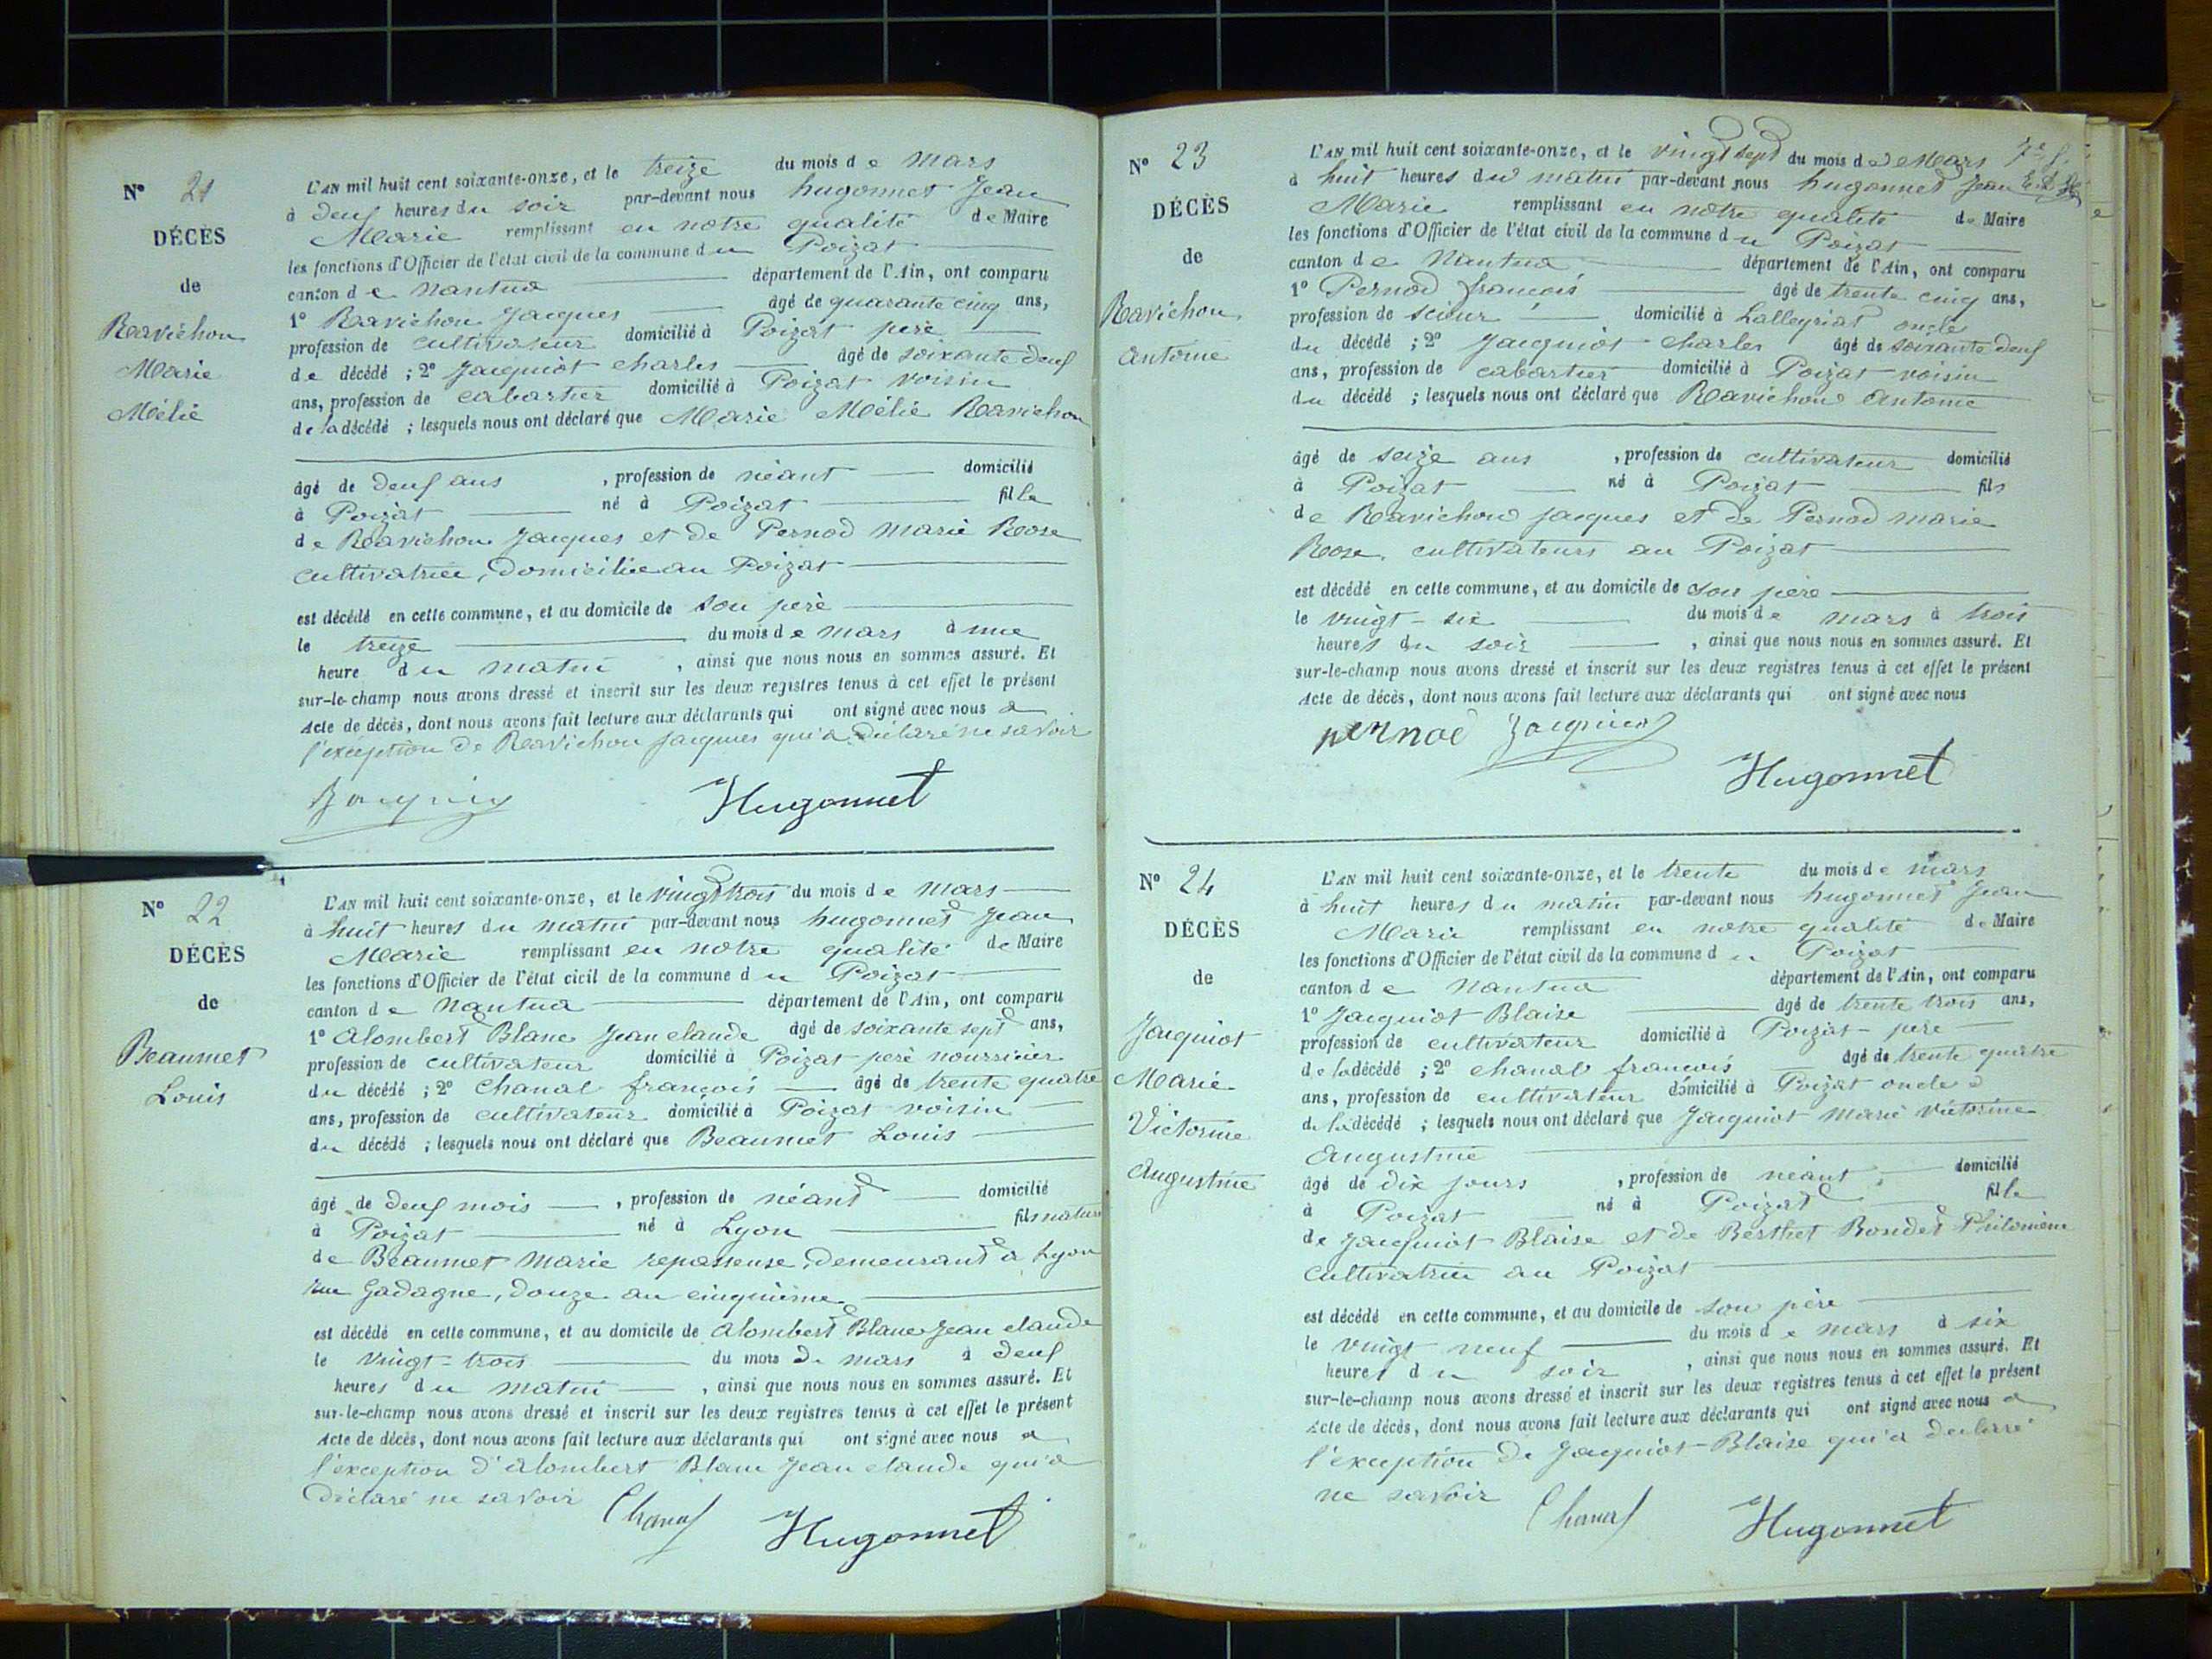 N° 21
DÉCÈS
de
Ravichon
Marie
Mélie
L'AN mil huit cent soixante-onze, et le treize du mois de Mars
à deux heures du soir par-devant nous hugonnet Jean
Marie remplissant en notre qualité de Maire
les fonctions d'Officier de l'état civil de la commune du Poizat
canton de Nantua département de l'Ain, ont comparu
1° Ravichon Jacques âgé de quarante cinq ans,
profession de cultivateur domicilié à Poizat père
de décédé ; 2° Jacquiot charles âgé de soixante deux
ans, profession de cabartier domicilié à Poizat voisin
de la décédé ; lesquels nous ont déclaré que Marie Mélie Ravichon
âgé de deux ans , profession de néant domicilié
à Poizat né à Poizat fille
de Ravichon Jacques et de Pernod Marie Rose
cultivatrice, domiciliée au Poizat
est décédé en cette commune, et au domicile de son père
le treize du mois de mars à une
heure du matin , ainsi que nous nous en sommes assuré. Et
sur-le-champ nous avons dressé et inscrit sur les deux registres tenus à cet effet le présent
Acte de décès, dont nous avons fait lecture aux déclarants qui ont signé avec nous a
l'exception de Ravichon Jacques qui a déclaré ne savoir
Hugonnet
N° 22
DÉCÈS
de
Beaumet
Louis
L'AN mil huit cent soixante-onze, et le vingt trois du mois de Mars
à huit heures du matin par-devant nous hugonnet Jean
Marie remplissant en notre qualité de Maire
les fonctions d'Officier de l'état civil de la commune du Poizat
canton de Nantua département de l'Ain, ont comparu
1° Alombert Blanc Jean claude âgé de soixante sept ans,
profession de cultivateur domicilié à Poizat père nourricier
du décédé ; 2° Chanal françois âgé de trente quatre
ans, profession de cultivateur domicilié à Poizat voisin
du décédé ; lesquels nous ont déclaré que Beaumet Louis
âgé de deux mois , profession de néant domicilié
à Poizat né à Lyon fils nature
de Beaumet Marie repasseuse, demeurant à Lyon
rue Gadagne, douze au cinquième
est décédé en cette commune, et au domicile de Alombert Blanc Jean claude
le vingt-trois du mois de mars à deux
heures du matin , ainsi que nous nous en sommes assuré. Et
sur-le-champ nous avons dressé et inscrit sur les deux registres tenus à cet effet le présent
Acte de décès, dont nous avons fait lecture aux déclarants qui ont signé avec nous a
l'exception d'Alombert Blanc Jean claude qui a
déclaré ne savoir
Chanal Hugonnet
N° 23
DÉCÈS
de
Ravichon
Antoine
L'AN mil huit cent soixante-onze, et le vingt sept du mois de Mars
à huit heures du matin par-devant nous hugonnet Jean
Marie remplissant en notre qualité de Maire
les fonctions d'Officier de l'état civil de la commune du Poizat
canton de Nantua département de l'Ain, ont comparu
1° Pernod françois âgé de trente cinq ans,
profession de scieur domicilié à Lalleyriat oncle
du décédé ; 2° Jacquiot charles âgé de soixante deux
ans, profession de cabartier domicilié à Poizat voisin
du décédé ; lesquels nous ont déclaré que Ravichon Antoine
âgé de seize ans , profession de cultivateur domicilié
à Poizat né à Poizat fils
de Ravichon Jacques et de Pernod marie
Rose, cultivateurs au Poizat
est décédé en cette commune, et au domicile de son père
le vingt-six du mois de mars à trois
heures du soir , ainsi que nous nous en sommes assuré. Et
sur-le-champ nous avons dressé et inscrit sur les deux registres tenus à cet effet le présent
Acte de décès, dont nous avons fait lecture aux déclarants qui ont signé avec nous
pernod Jacquiot
Hugonnet
N° 24
DÉCÈS
de
Jacquiot
Marie
Victorine
Augustine
L'AN mil huit cent soixante-onze, et le trente du mois de mars
à huit heures du matin par-devant nous hugonnet Jean
Marie remplissant en notre qualité de Maire
les fonctions d'Officier de l'état civil de la commune du Poizat
canton de Nantua département de l'Ain, ont comparu
1° Jacquiot Blaise âgé de trente trois ans,
profession de cultivateur domicilié à Poizat père
de la décédé ; 2° chanal françois âgé de trente quatre
ans, profession de cultivateur domicilié à Poizat oncle
de la décédé ; lesquels nous ont déclaré que Jacquiot Marie Victorine
Augustine
âgé de dix jours , profession de néant domicilié
à Poizat né à Poizat fille
de Jacquiot Blaise et de Berthet Bondet Philomène
cultivatrice au Poizat
est décédé en cette commune, et au domicile de son père
le vingt neuf du mois de mars à six
heures du soir , ainsi que nous nous en sommes assuré. Et
sur-le-champ nous avons dressé et inscrit sur les deux registres tenus à cet effet le présent
Acte de décès, dont nous avons fait lecture aux déclarants qui ont signé avec nous a
l'exception de Jacquiot Blaise qui a déclaré
ne savoir
Chanal Hugonnet